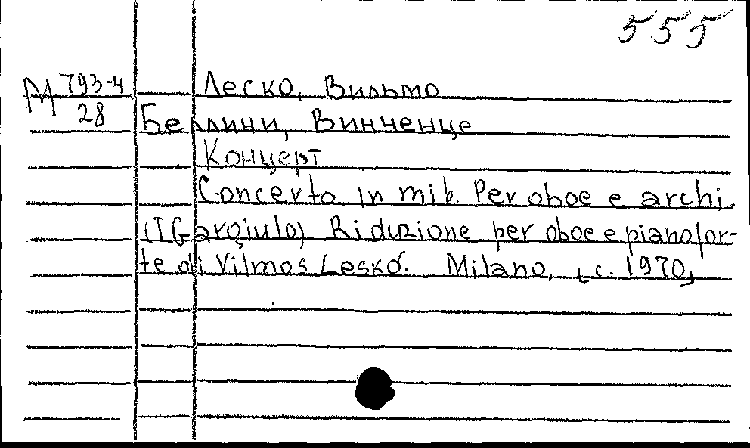 555
М 793-4
28
Леско, Вильмо
Беллини, Винченце
Концерт
Concerto in mib. Per oboe e archi.
(TGargiulo) Riduzione per oboe e pianofor-
te di Vilmos Leskó. Milano, [c. 1970]